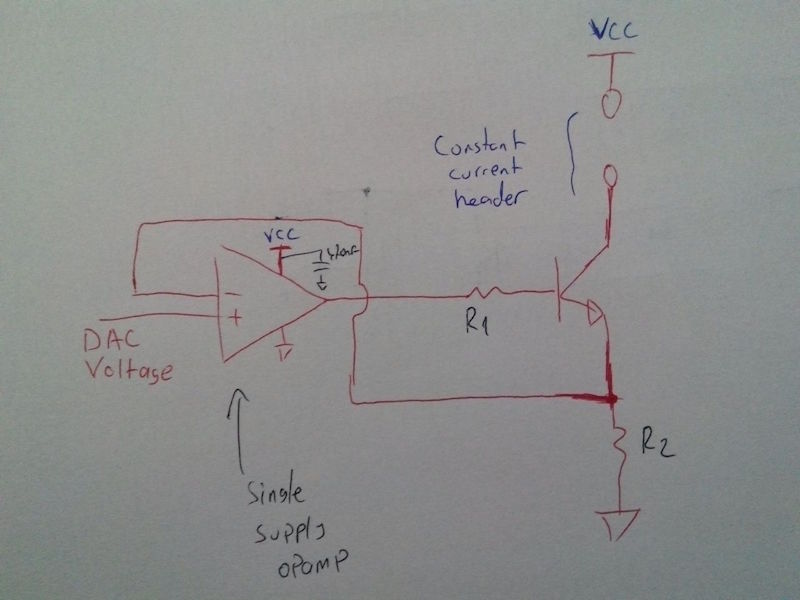 VCC
Constant
current
header
VCC
470nF
−
+
DAC
Voltage
R1
R2
Single
supply
opamp